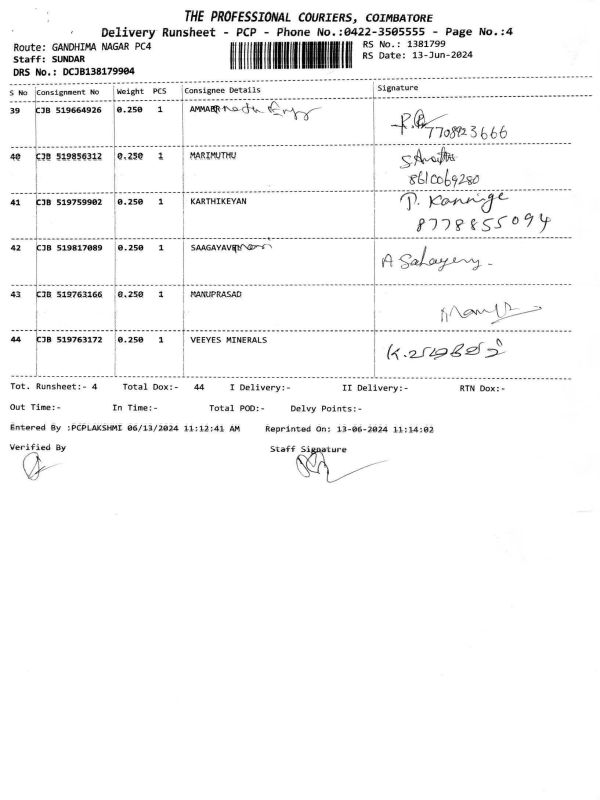 THE PROFESSIONAL COURIERS, COIMBATORE
Delivery Runsheet - PCP - Phone No.:0422-3505555 - Page No.:4
Route: GANDHIMA NAGAR PC4 RS No.: 1381799
Staff: SUNDAR RS Date: 13-Jun-2024
DRS No.: DCJB138179904
S No Consignment No Weight PCS Consignee Details Signature
39 CJB 519664926 0.250 1
7708923666
40 CJB 519856312 0.250 1 MARIMUTHU
8610069280
41 CJB 519759902 0.250 1 KARTHIKEYAN
8778855094
42 CJB 519817089 0.250 1
A Sahayeny
43 CJB 519763166 0.250 1 MANUPRASAD
44 CJB 519763172 0.250 1 VEEYES MINERALS
Tot. Runsheet:- 4 Total Dox:- 44 I Delivery:- II Delivery:- RTN Dox:-
Out Time:- In Time:- Total POD:- Delvy Points:-
Entered By :PCPLAKSHMI 06/13/2024 11:12:41 AM Reprinted On: 13-06-2024 11:14:02
Verified By Staff Signature